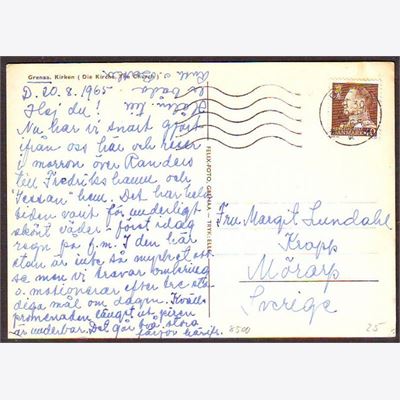 Grenaa. Kirken (Die Kirche, The Church).
D. 20.8.1965
Hej du!
Nu har vi snart gjort
ifrån oss här och reser
i morron över Randers
till Fredrikshamn och
"Tessan" hem. Det har hela
tiden varit för underligt
skönt väder - först idag
regn på f.m. I den här
stan är inte så mycket att
se men vi travar omkring
o. motionerar efter tre stadiga mål om dagen. Kvälls
promenaden längst ut piren
är underbar. Det går två stora
färjor härifr.
FELIX-FOTO, GRENAA
DANMARK
Fru Margit Lundahl
Kropp
Mörarp
Sverige
8500
25